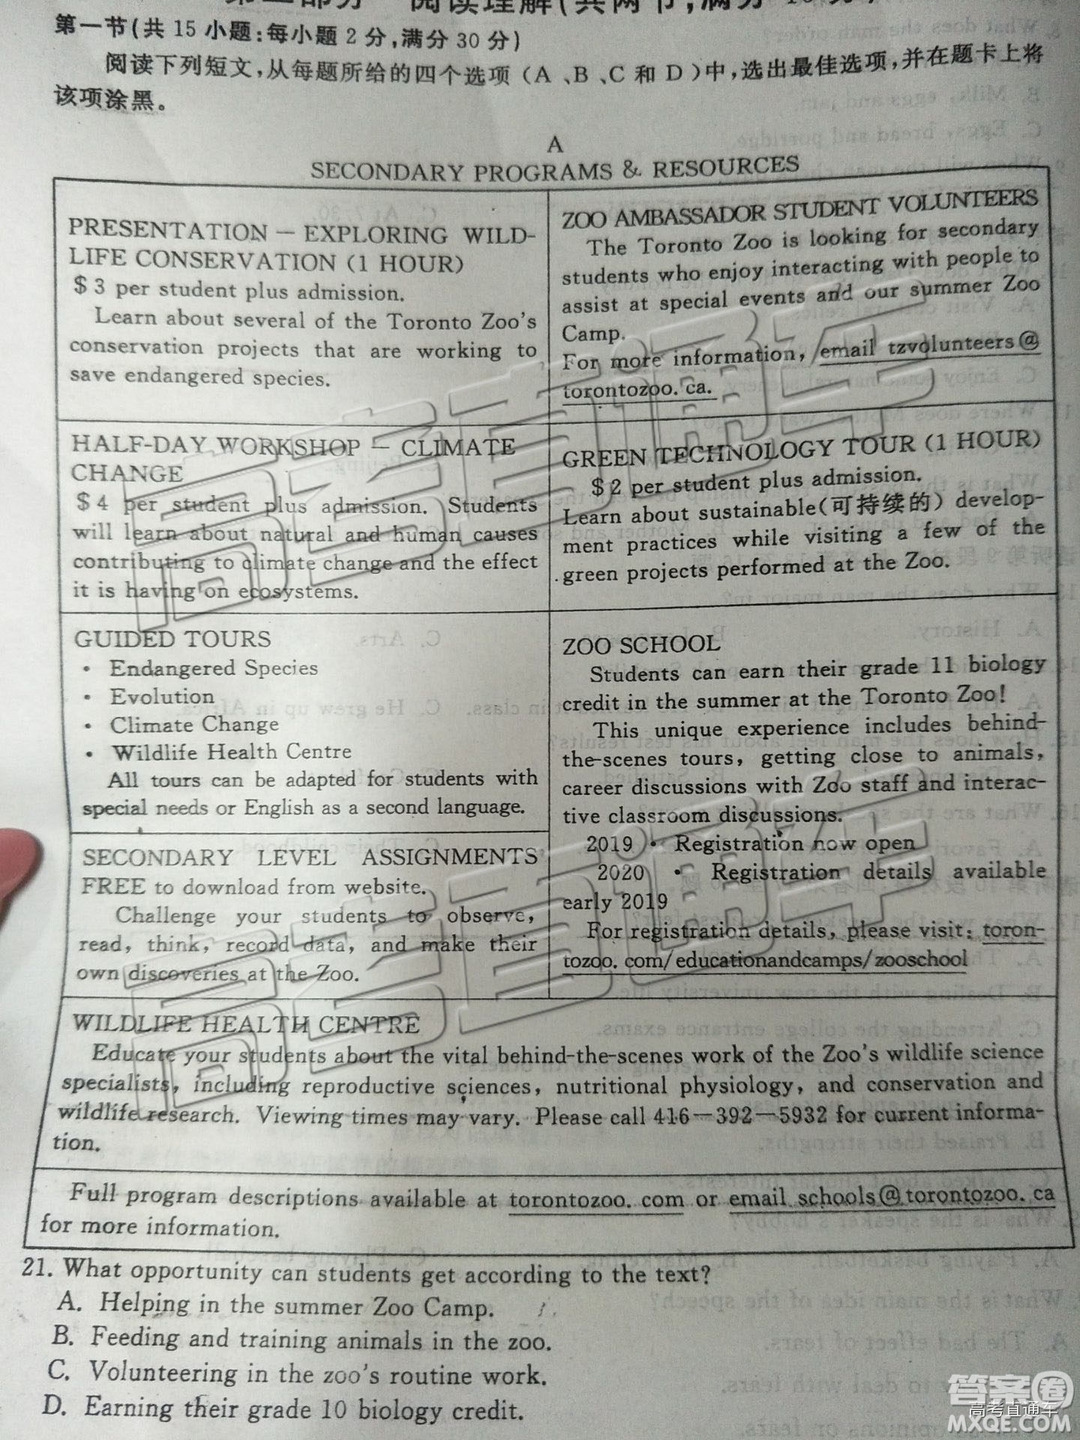 第一节(共 15 小题:每小题 2 分,满分 30 分)
阅读下列短文,从每题所给的四个选项(A、B、C 和 D)中,选出最佳选项,并在题卡上将
该项涂黑。
A
SECONDARY PROGRAMS & RESOURCES
PRESENTATION — EXPLORING WILD-
LIFE CONSERVATION (1 HOUR)
$3 per student plus admission.
Learn about several of the Toronto Zoo's
conservation projects that are working to
save endangered species.
ZOO AMBASSADOR STUDENT VOLUNTEERS
The Toronto Zoo is looking for secondary
students who enjoy interacting with people to
assist at special events and our summer Zoo
Camp.
For more information, email tzvolunteers@
torontozoo.ca.
HALF-DAY WORKSHOP — CLIMATE
CHANGE
$4 per student plus admission. Students
will learn about natural and human causes
contributing to climate change and the effect
it is having on ecosystems.
GREEN TECHNOLOGY TOUR (1 HOUR)
$2 per student plus admission.
Learn about sustainable(可持续的) develop-
ment practices while visiting a few of the
green projects performed at the Zoo.
GUIDED TOURS
• Endangered Species
• Evolution
• Climate Change
• Wildlife Health Centre
All tours can be adapted for students with
special needs or English as a second language.
ZOO SCHOOL
Students can earn their grade 11 biology
credit in the summer at the Toronto Zoo!
This unique experience includes behind-
the-scenes tours, getting close to animals,
career discussions with Zoo staff and interac-
tive classroom discussions.
2019 • Registration now open
2020 • Registration details available
early 2019
For registration details, please visit: toron-
tozoo.com/educationandcamps/zooschool
SECONDARY LEVEL ASSIGNMENTS
FREE to download from website.
Challenge your students to observe,
read, think, record data, and make their
own discoveries at the Zoo.
WILDLIFE HEALTH CENTRE
Educate your students about the vital behind-the-scenes work of the Zoo's wildlife science
specialists, including reproductive sciences, nutritional physiology, and conservation and
wildlife research. Viewing times may vary. Please call 416—392—5932 for current informa-
tion.
Full program descriptions available at torontozoo.com or email schools@torontozoo.ca
for more information.
21. What opportunity can students get according to the text?
A. Helping in the summer Zoo Camp.
B. Feeding and training animals in the zoo.
C. Volunteering in the zoo's routine work.
D. Earning their grade 10 biology credit.
答案圈
高考直通车
MXQE.COM